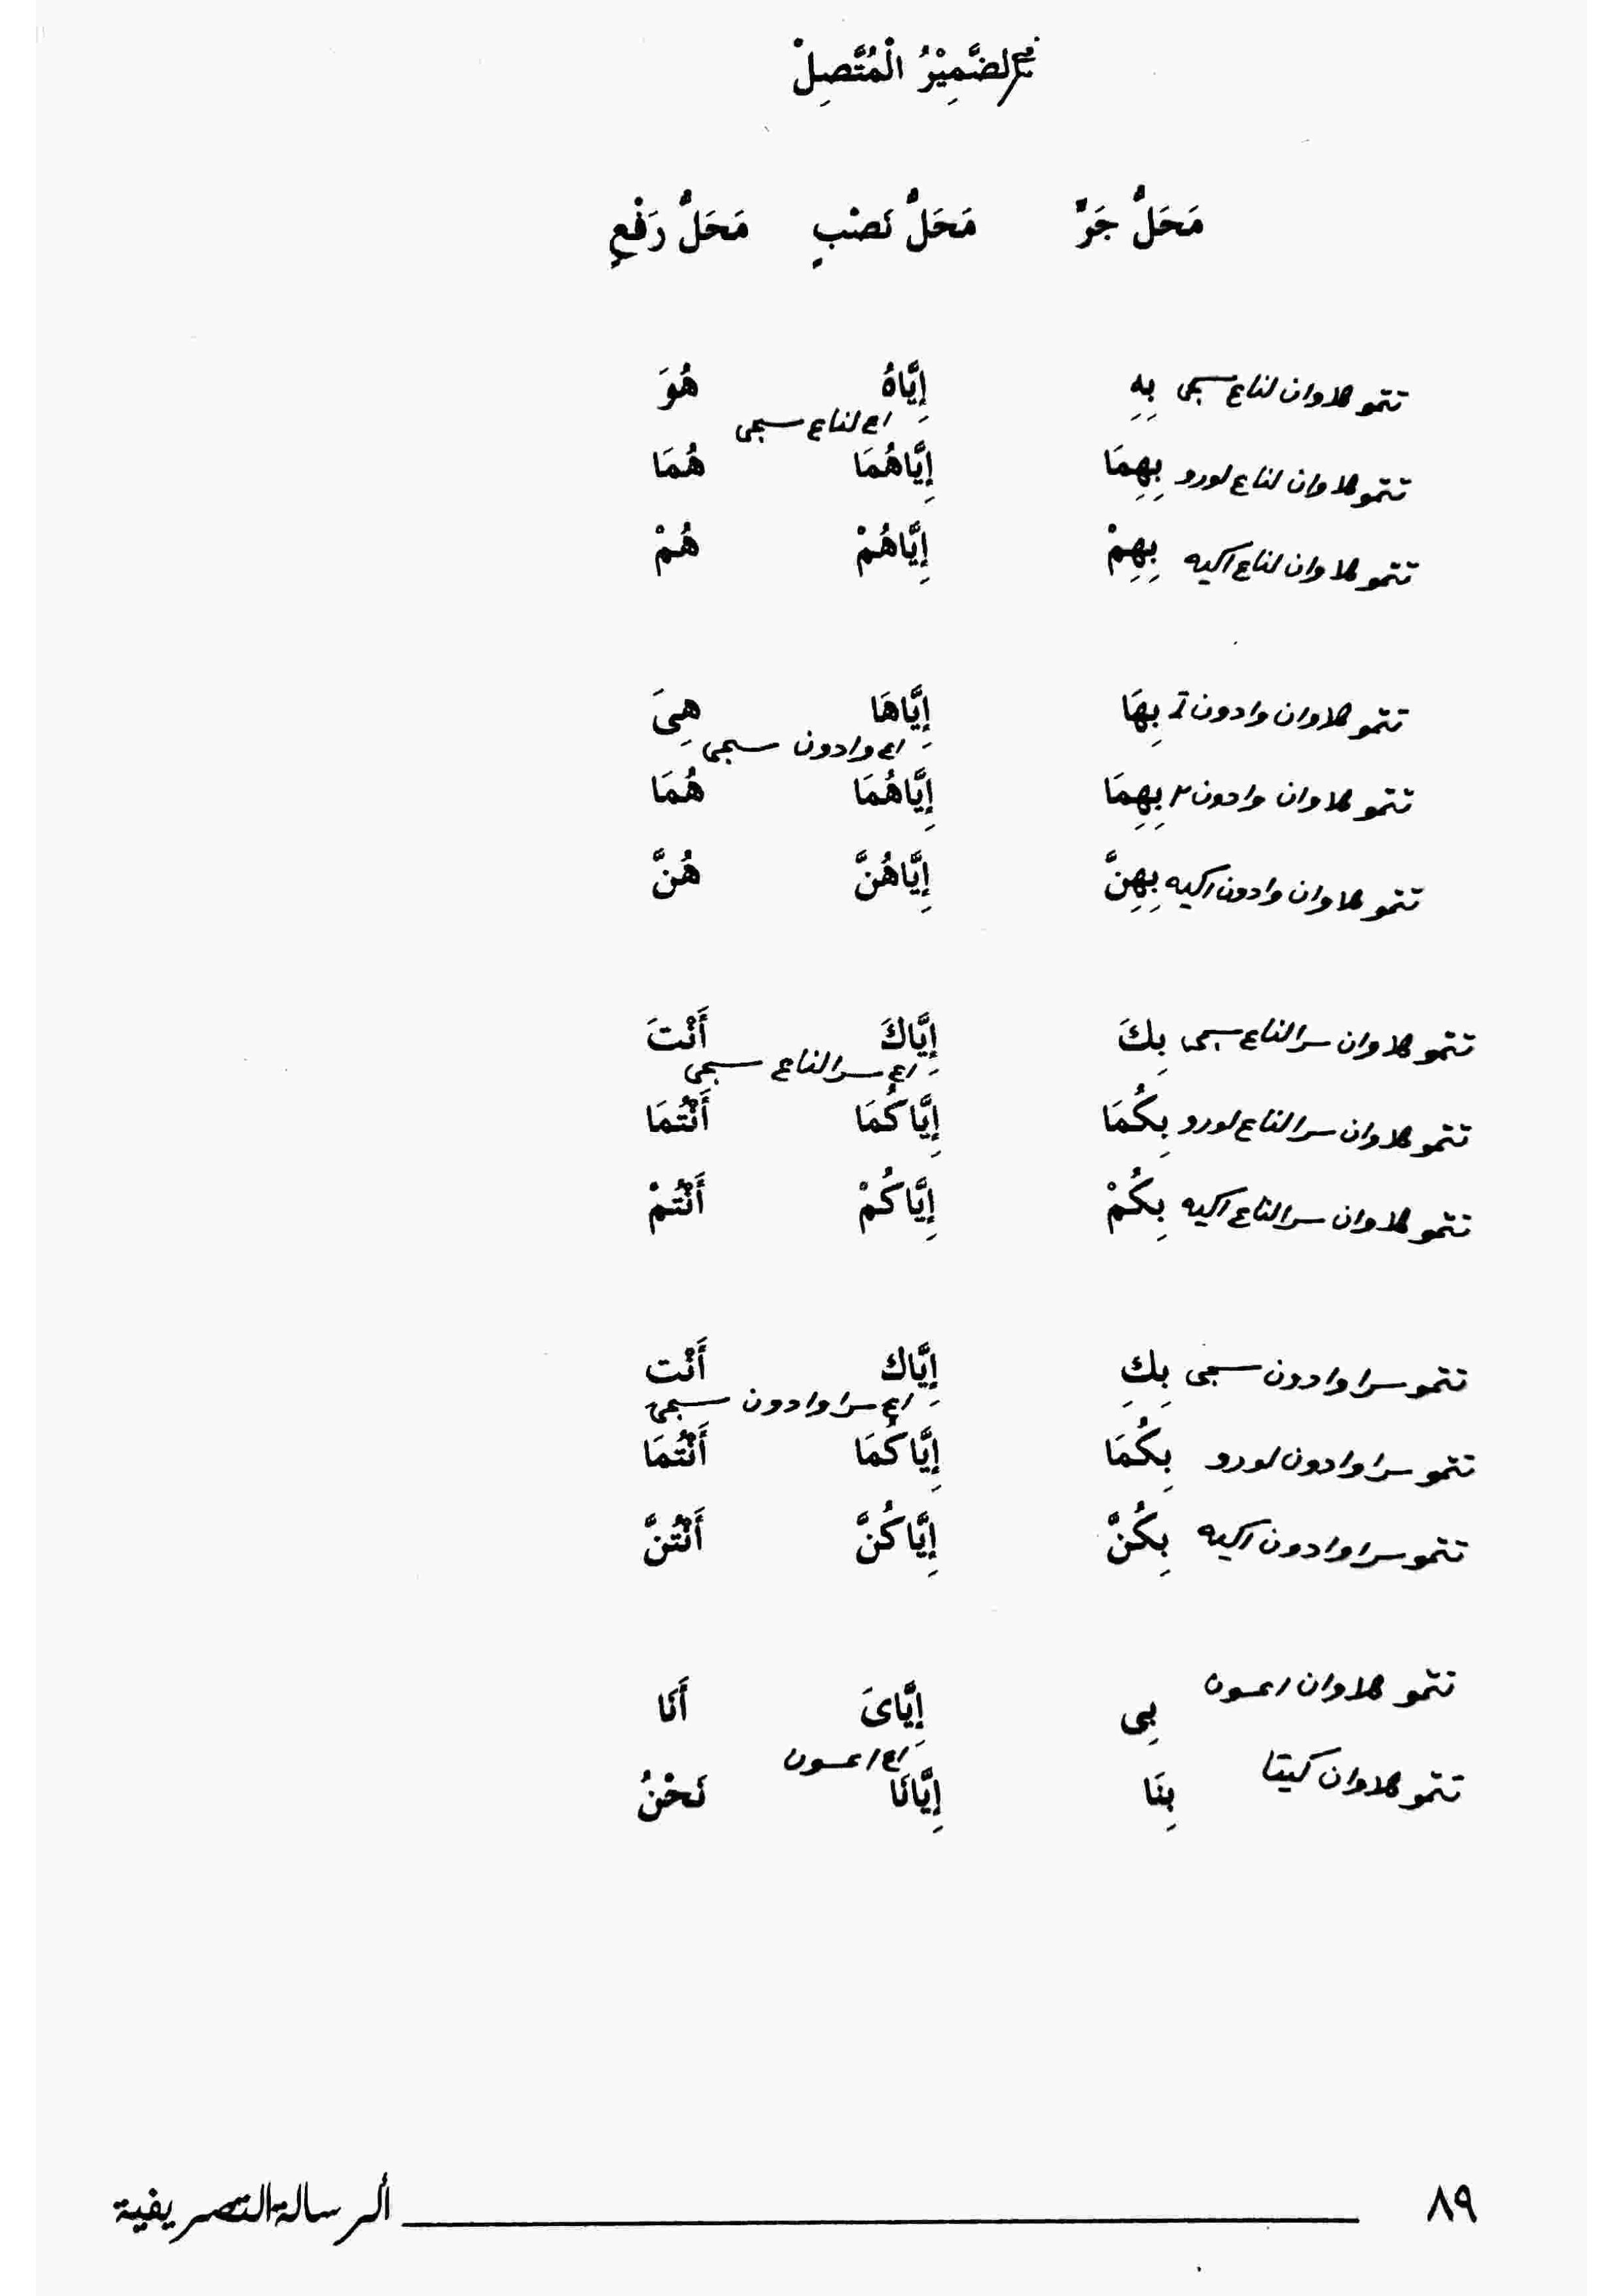 الضَّمِيْرُ الْمُتَّصِلْ
مَحَلُّ جَرٍّ مَحَلُّ نَصْبٍ مَحَلُّ رَفْعٍ
تتمو كلاوان لناع سجى بِهِ إِيَّاهُ هُوَ
اع لناع سجى
تتمو كلاوان لناع لورو بِهِمَا إِيَّاهُمَا هُمَا
تتمو كلاوان لناع اكيه بِهِمْ إِيَّاهُمْ هُمْ
تتمو كلاوان وادون بِهَا إِيَّاهَا هِىَ
اع وادون سجى
تتمو كلاوان وادون ٢ بِهِمَا إِيَّاهُمَا هُمَا
تتمو كلاوان وادون اكيه بِهِنَّ إِيَّاهُنَّ هُنَّ
تتمو كلاوان سرا لناع سجى بِكَ إِيَّاكَ أَنْتَ
اع سرا لناع سجى
تتمو كلاوان سرا لناع لورو بِكُمَا إِيَّاكُمَا أَنْتُمَا
تتمو كلاوان سرا لناع اكيه بِكُمْ إِيَّاكُمْ أَنْتُمْ
تتمو سرا وادون سجى بِكِ إِيَّاك أَنْت
اع سرا وادون سجى
تتمو سرا وادون لورو بِكُمَا إِيَّاكُمَا أَنْتُمَا
تتمو سرا وادون اكيه بِكُنَّ إِيَّاكُنَّ أَنْتُنَّ
تتمو كلاوان اعسون بِى إِيَّاىَ أَنَا
اع اعسون
تتمو كلاوان كيتا بِنَا إِيَّانَا نَحْنُ
٨٩ ألرسالة التصريفية